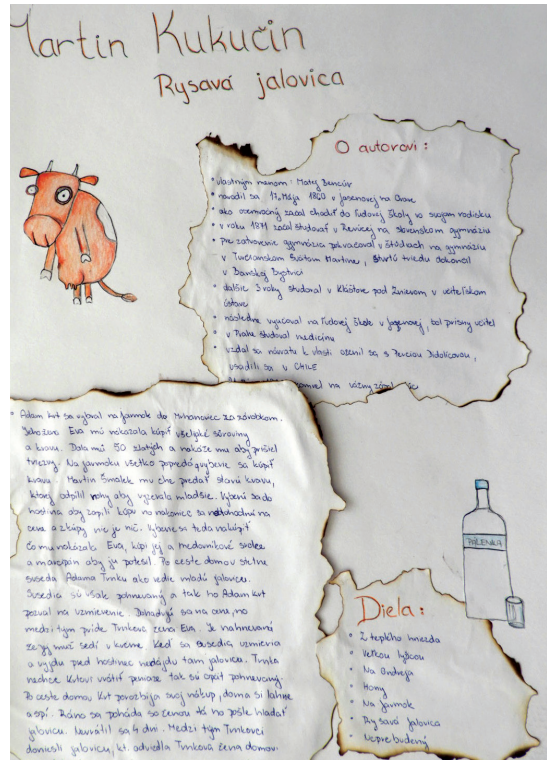 Martin Kukučín
Rysavá jalovica
O autorovi:
• vlastným menom: Matej Bencúr
• narodil sa 17. Mája 1860 v Jasenovej na Orave
• ako osemročný začal chodiť do Ľudovej školy vo svojom rodisku
• v roku 1871 začal študovať v Revúcej na slovenskom gymnáziu
• pre zatvorenie gymnázia pokračoval v štúdiach na gymnáziu
v Turčianskom Svätom Martine, štvrtú triedu dokončil
v Banskej Bystrici
• ďalšie 3 roky študoval v Kláštore pod Znievom v učiteľskom
ústave
• následne vyučoval na Ľudovej škole v Jasenovej, bol prísny učiteľ
• v Prahe študoval medicínu
• vzdal sa návratu k vlasti oženil sa s Perciou Didolicovou,
usadili sa v CHILE
zomrel na vážny zápal
• Adam Krt sa vybral na jarmok do za zárobkom.
Jeho žena Eva mu nakázala kúpiť všelijaké súroviny
a kravu. Dala mu 50 zlatých a nakáže mu aby prišiel
triezvy. Na jarmoku všetko popredá, vyberie sa kúpiť
kravu. Martin Šmalek mu chce predať starú kravu,
ktorej odpílil rohy aby vyzerala mladšie. Vyberú sa do
hostinca aby zapili kúpu no nakoniec sa nedohodnú na
cene a z kúpy nie je nič. Vyberie sa teda nakúpiť
čo mu nakázala Eva, kúpi jej a medovníkové srdce
a marcipán aby ju potešil. Po ceste domov stretne
suseda Adama Trnku ako vedie mladú jalovicu.
Susedia sú však pohnevaný a tak ho Adam Krt
pozval na uzmierenie. Dohadujú sa na cene, no
medzi tým príde Trnkova žena Eva. Je nahnevaná
že jej muž sedí v krčme. Keď sa susedia uzmieria
a vyjdu pred hostinec nenájdu tam jalovicu. Trnka
nechce Krtovi vrátiť peniaze tak sú opäť pohnevaný.
Po ceste domov Krt porozbíja svoj nákup, doma si ľahne
a spí. Ráno sa poháda so ženou tá ho pošle hľadať
jalovicu. Nevrátil sa 4 dni. Medzi tým Trnkovci
doniesli jalovicu, kt. odviedla Trnková žena domov.
PÁLENKA
Diela:
• Z teplého hniezda
• Veľkou lyžicou
• Na Ondreja
• Hody
• Na jarmok
• Rysavá jalovica
• Neprebudený